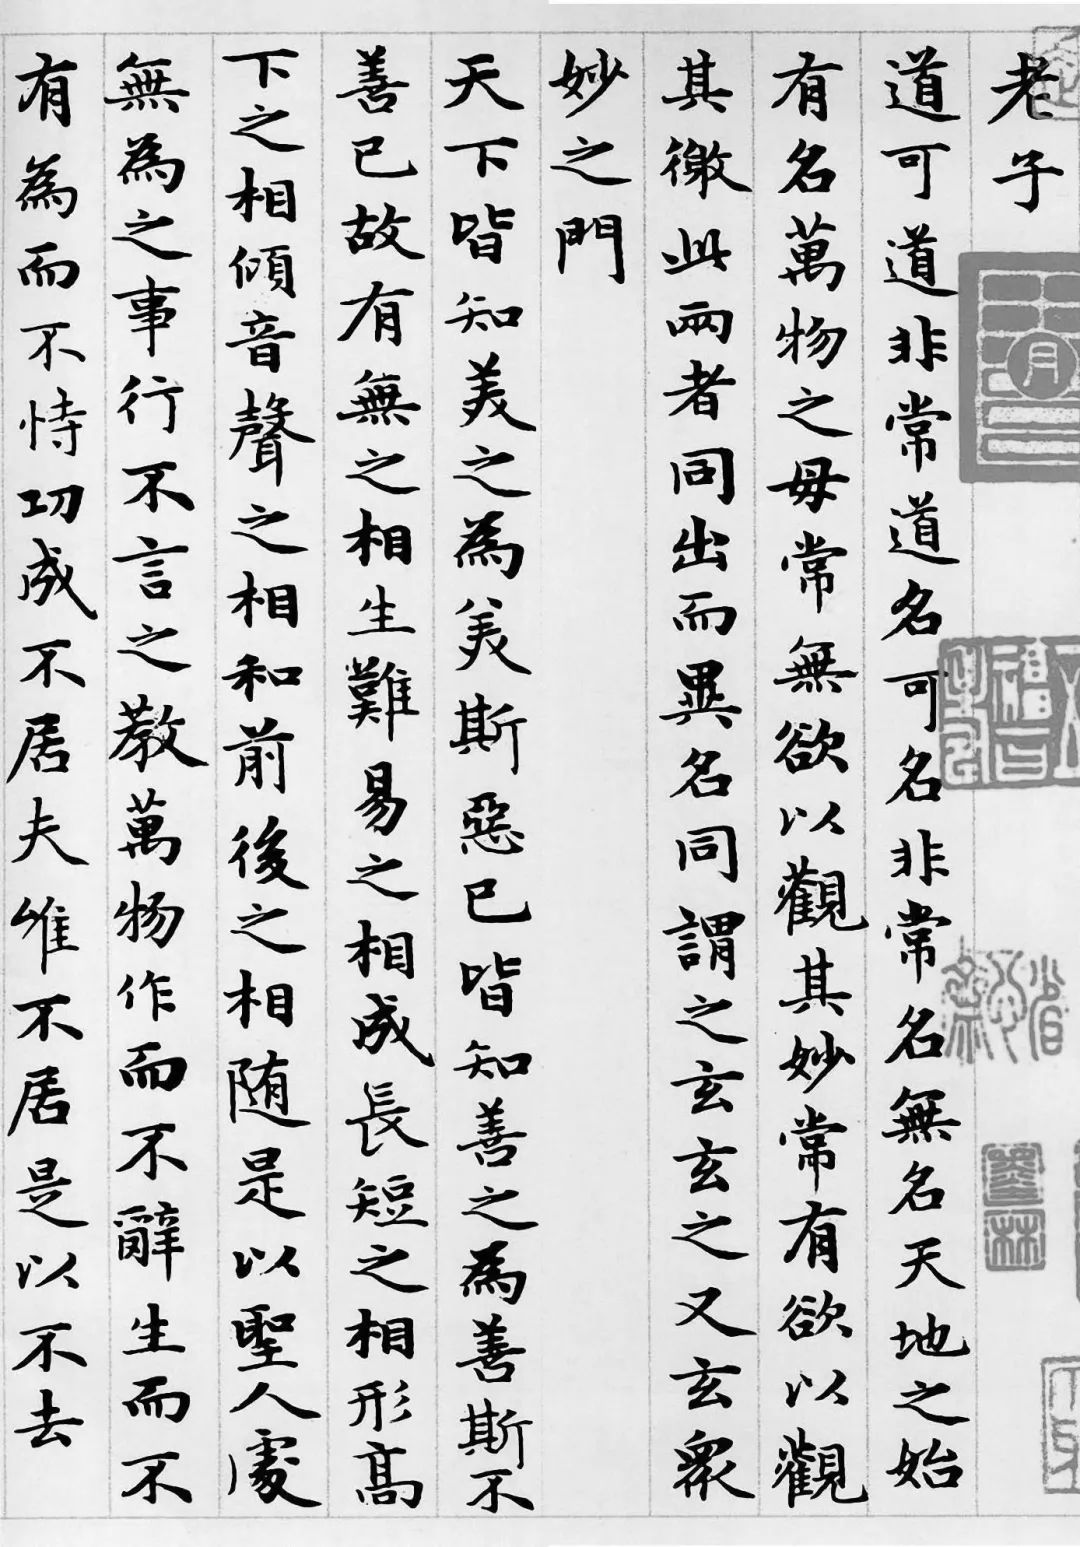 老子
道可道非常道名可名非常名無名天地之始
有名萬物之母常無欲以觀其妙常有欲以觀
其徼此兩者同出而異名同謂之玄玄之又玄衆
妙之門
天下皆知美之為美斯惡已皆知善之為善斯不
善已故有無之相生難易之相成長短之相形高
下之相傾音聲之相和前後之相随是以聖人處
無為之事行不言之教萬物作而不辭生而不
有為而不恃功成不居夫惟不居是以不去
墨林